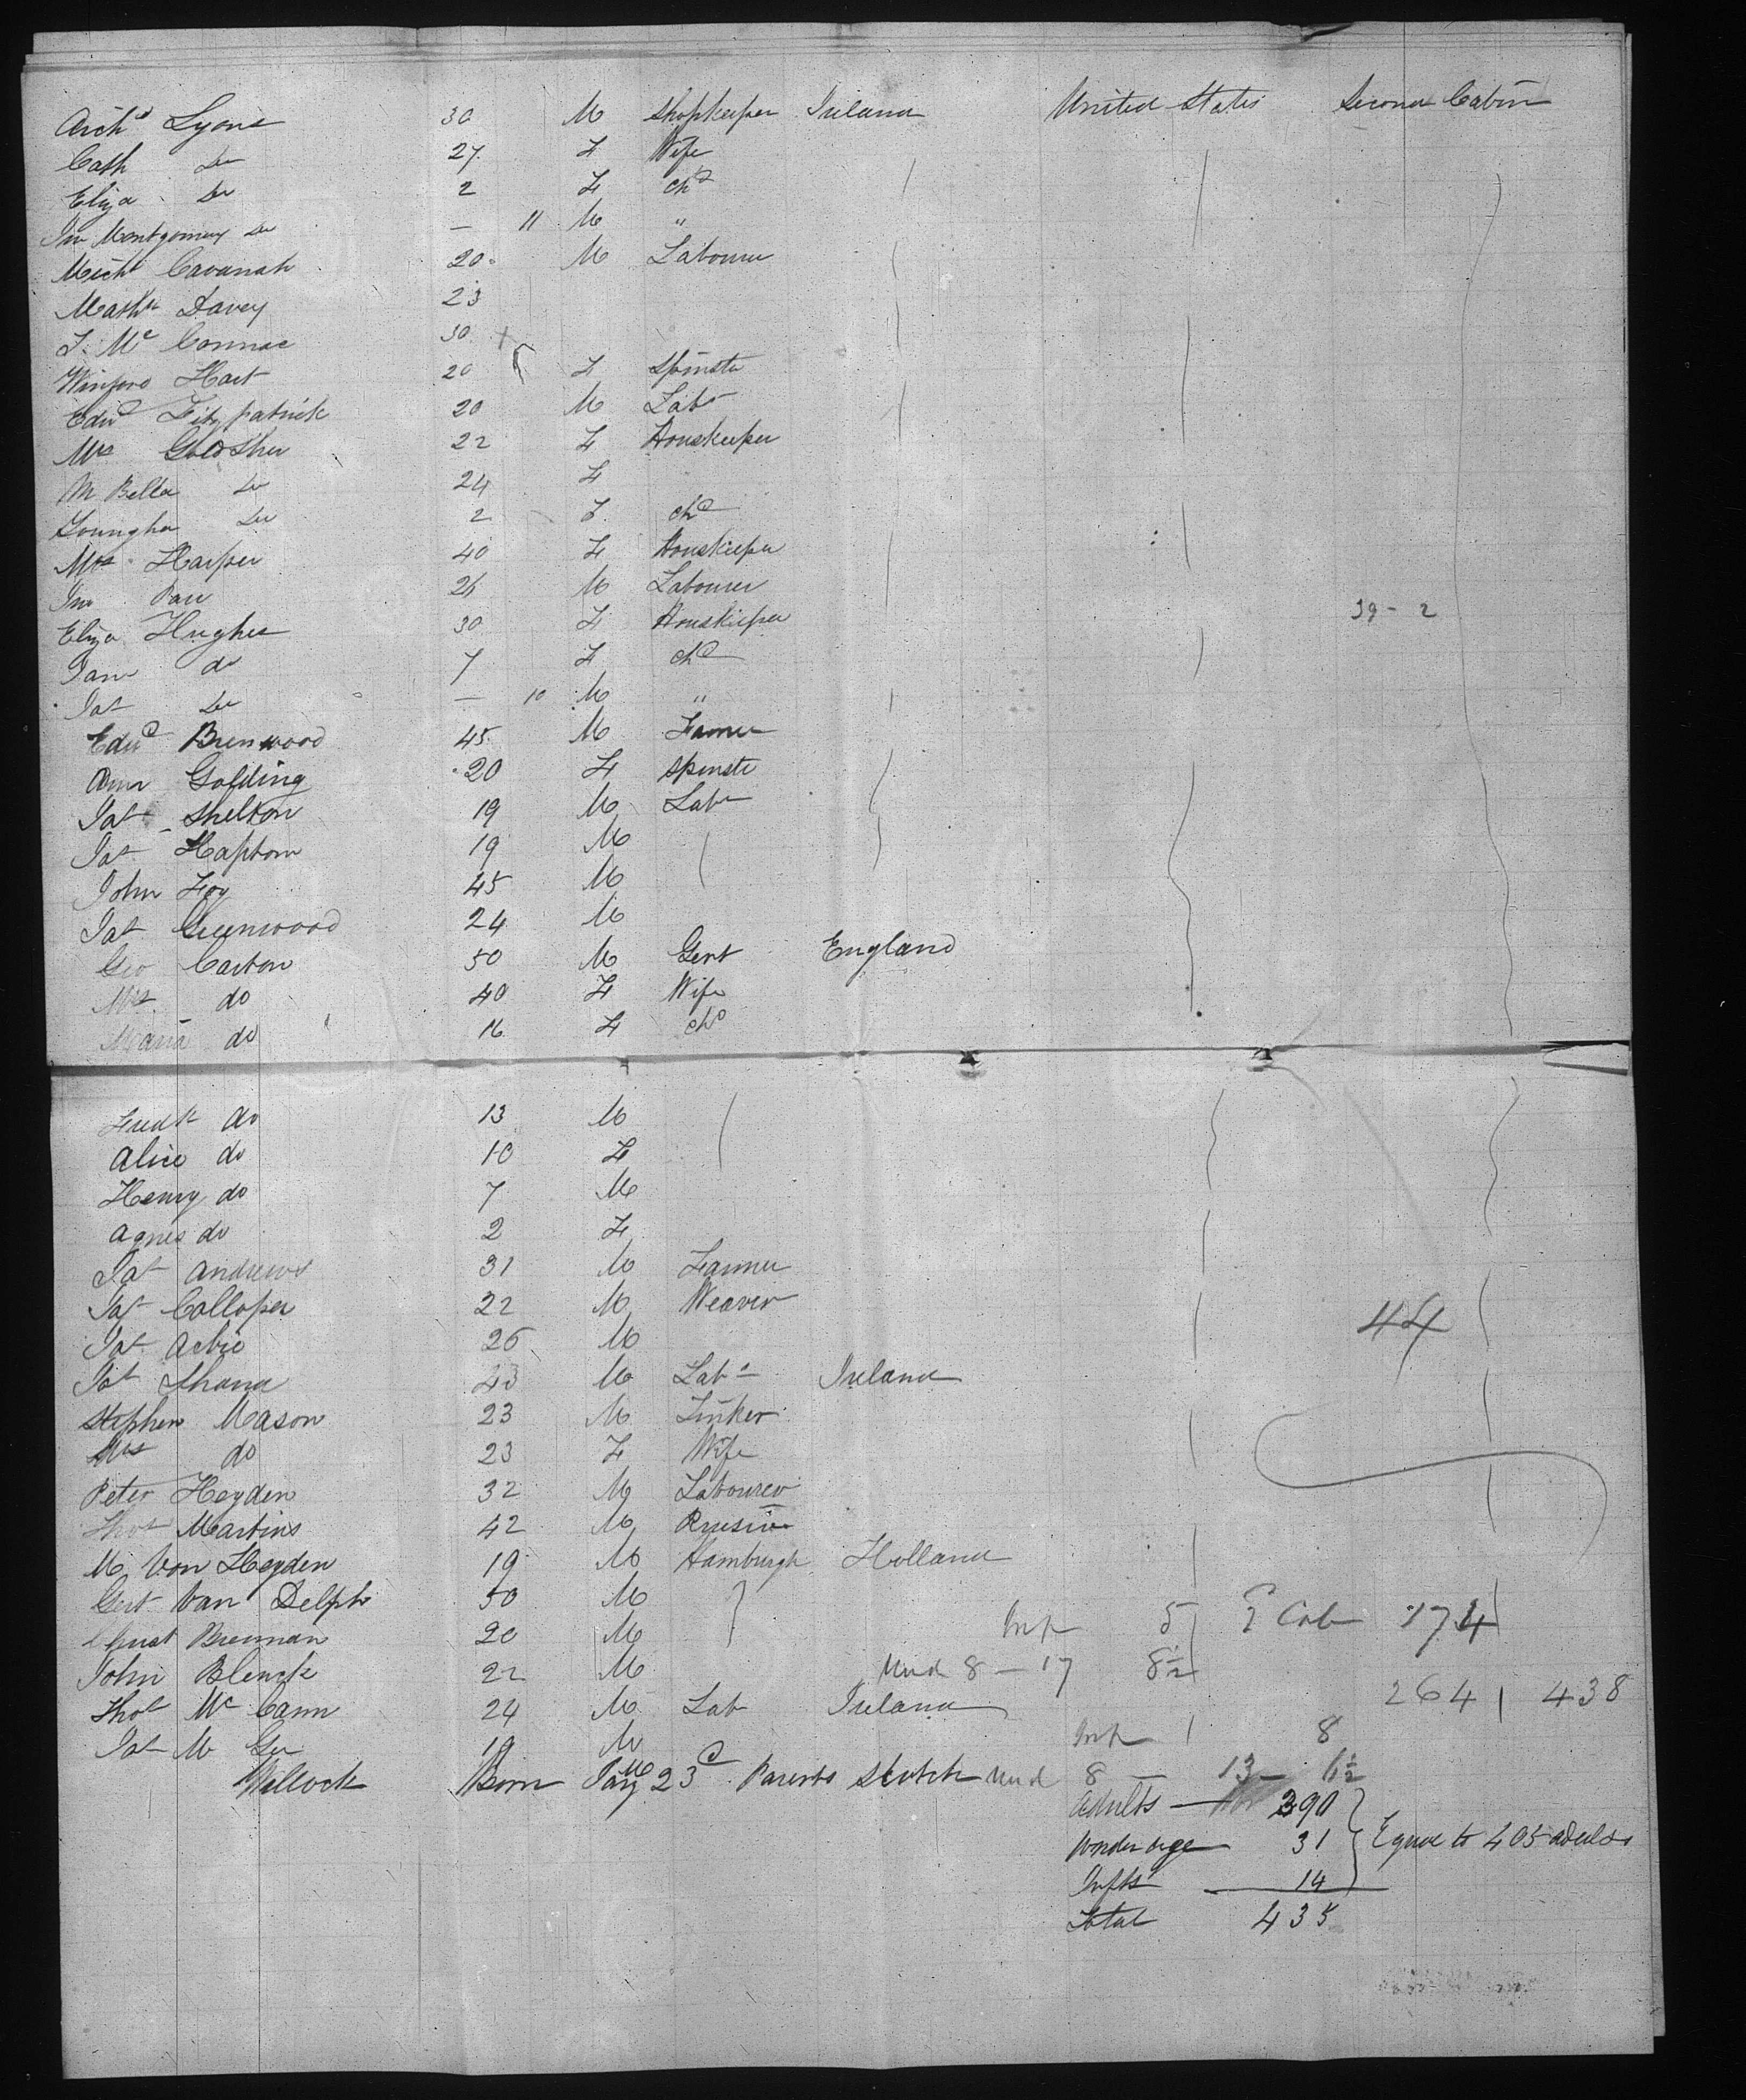 Archd Lyons 30 M Shopkeeper Ireland United States Second Cabin
Cath Do 27 F Wife
Eliza Do 2 F chd
Jno Montgomery Do — 11 M "
Michl Cavanah 20 M Labourer
Mathw Davey 23
J. Mc Connac 30
Winford Hart 20 F Spinster
Edwd Fitzpatrick 20 M Labr
Mrs 22 F Houskeeper
M Bella Do 24 F
Do 2 F. chd
Mrs Harper 40 F Houskeeper
Jno 26 M Labourer
Eliza Hughes 30 F Houskeeper 39 - 2
Jane do 7 F chd
Jas Do — 10 M "
Edwd Brenwood 45 M Farmer
Ann Golding 20 F Spinster
Jas Shelton 19 M Labr
Jas 19 M
John Foy 45 M
Jas Greenwood 24 M
Geo Carton 50 M Gent England
Mrs do 40 F Wife
Maria do 16 F chd
Fredk do 13 M
Alice do 10 F
Henry do 7 M
Agnes do 2 F
Jas Andrews 31 M Farmer
Jas Colloper 22 M Weaver 44
Jas 26 M
Jas 43 M Labr Ireland
Stephen Mason 23 M Tinker
Mrs do 23 F Wife
Peter Heyden 32 M Labourer
Thos Martins 42 M
M Von Heyden 19 M Hamburgh Holland
Gert Van Delph 50 M
Brennan 20 M Inf 5 Cab 174
John Blenck 22 M Und 8 — 17 8½
Thos Mc Cann 24 M Lab Ireland 264 438
Jas M Gee 19 M Inf 8
Willock Born Jany 23d Parents Scotch Und 8 — 13 — 6½
Adults — 390
Under age 31 Equal to 405 adults
Infts 14
Total 435